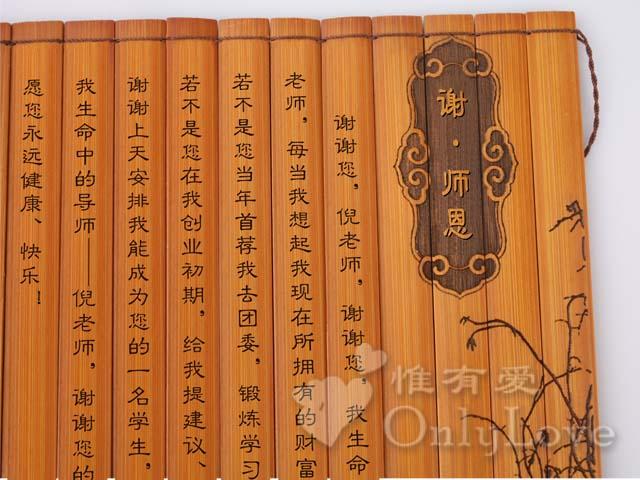 谢·师恩
谢谢您，倪老师，谢谢您，我生命
老师，每当我想起我现在所拥有的财富
若不是您当年首荐我去团委，锻炼学习
若不是您在我创业初期，给我提建议、
谢谢上天安排我能成为您的一名学生，
我生命中的导师——倪老师，谢谢您的
愿您永远健康、快乐！
惟有爱
OnlyLove